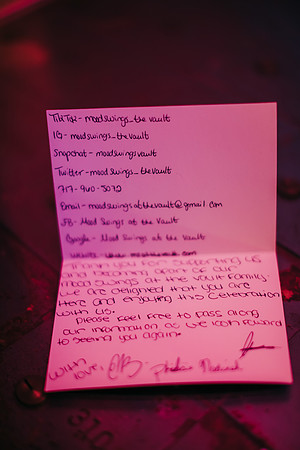 TikTok - moodswings_thevault
IG - moodswings_thevault
Snapchat - moodswingsvault
Twitter - moodswings_thevault
717-940-5072
Email - moodswingsatthevault@gmail.com
FB - Mood Swings at the Vault
Google - Mood Swings at the Vault
Thank you for supporting us
and becoming apart of our
Mood Swings at the Vault family.
We are delighted that you are
here and enjoying this celebration
with us.
Please feel free to pass along
our information as we look forward
to seeing you again!
With
love,